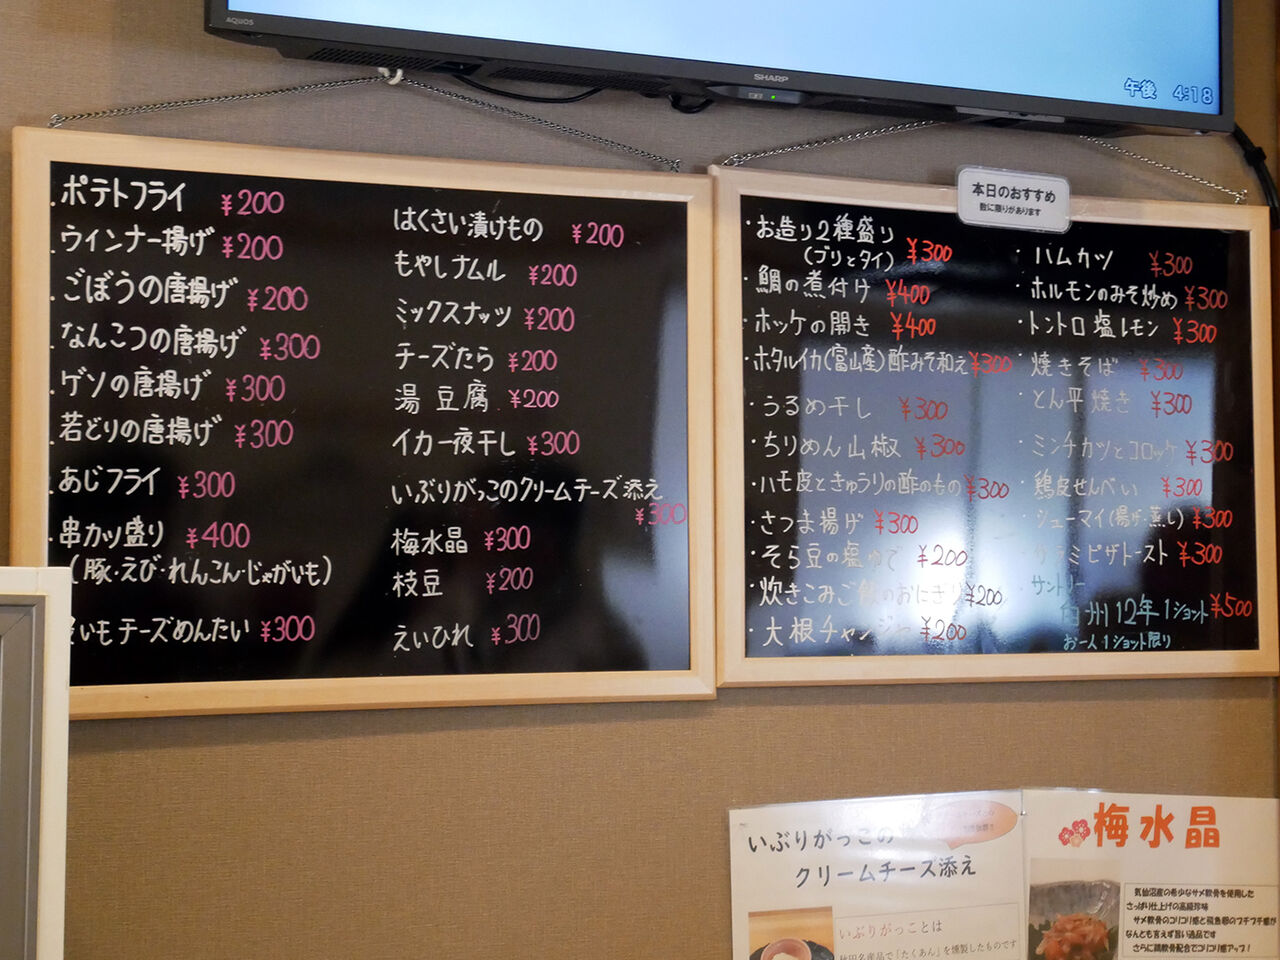 AQUOS
SHARP
午後 4:18
・ポテトフライ ¥200
・ウインナー揚げ ¥200
・ごぼうの唐揚げ ¥200
・なんこつの唐揚げ ¥300
・ゲソの唐揚げ ¥300
・若どりの唐揚げ ¥300
・あじフライ ¥300
・串カツ盛り ¥400
(豚・えび・れんこん・じゃがいも)
いもチーズめんたい ¥300
はくさい漬けもの ¥200
もやしナムル ¥200
ミックスナッツ ¥200
チーズたら ¥200
湯豆腐 ¥200
イカ一夜干し ¥300
いぶりがっこのクリームチーズ添え
¥300
梅水晶 ¥300
枝豆 ¥200
えいひれ ¥300
本日のおすすめ
数に限りがあります
・お造り2種盛り
(ブリとタイ) ¥300
・鯛の煮付け ¥400
・ホッケの開き ¥400
・ホタルイカ(富山産)酢みそ和え ¥300
・うるめ干し ¥300
・ちりめん山椒 ¥300
・ハモ皮ときゅうりの酢のもの ¥300
・さつま揚げ ¥300
・そら豆の塩ゆで ¥200
・炊きこみご飯のおにぎり ¥200
・大根チャンジャ ¥200
・ハムカツ ¥300
・ホルモンのみそ炒め ¥300
・トントロ塩レモン ¥300
・焼きそば ¥300
・とん平焼き ¥300
・ミンチカツとコロッケ ¥300
・鶏皮せんべい ¥300
・シューマイ(揚げ・蒸し) ¥300
・サラミピザトースト ¥300
・サントリー
白州12年1ショット ¥500
お一人1ショット限り
いぶりがっこの
クリームチーズ添え
いぶりがっことは
秋田名産品で「たくあん」を燻製したものです
梅水晶
気仙沼産の希少なサメ軟骨を使用した
さっぱり仕上げの高級珍味
サメ軟骨のコリコリ感と飛魚卵のプチプチ感が
なんとも言えず旨い逸品です
さらに鶏軟骨配合でコリコリ感アップ!